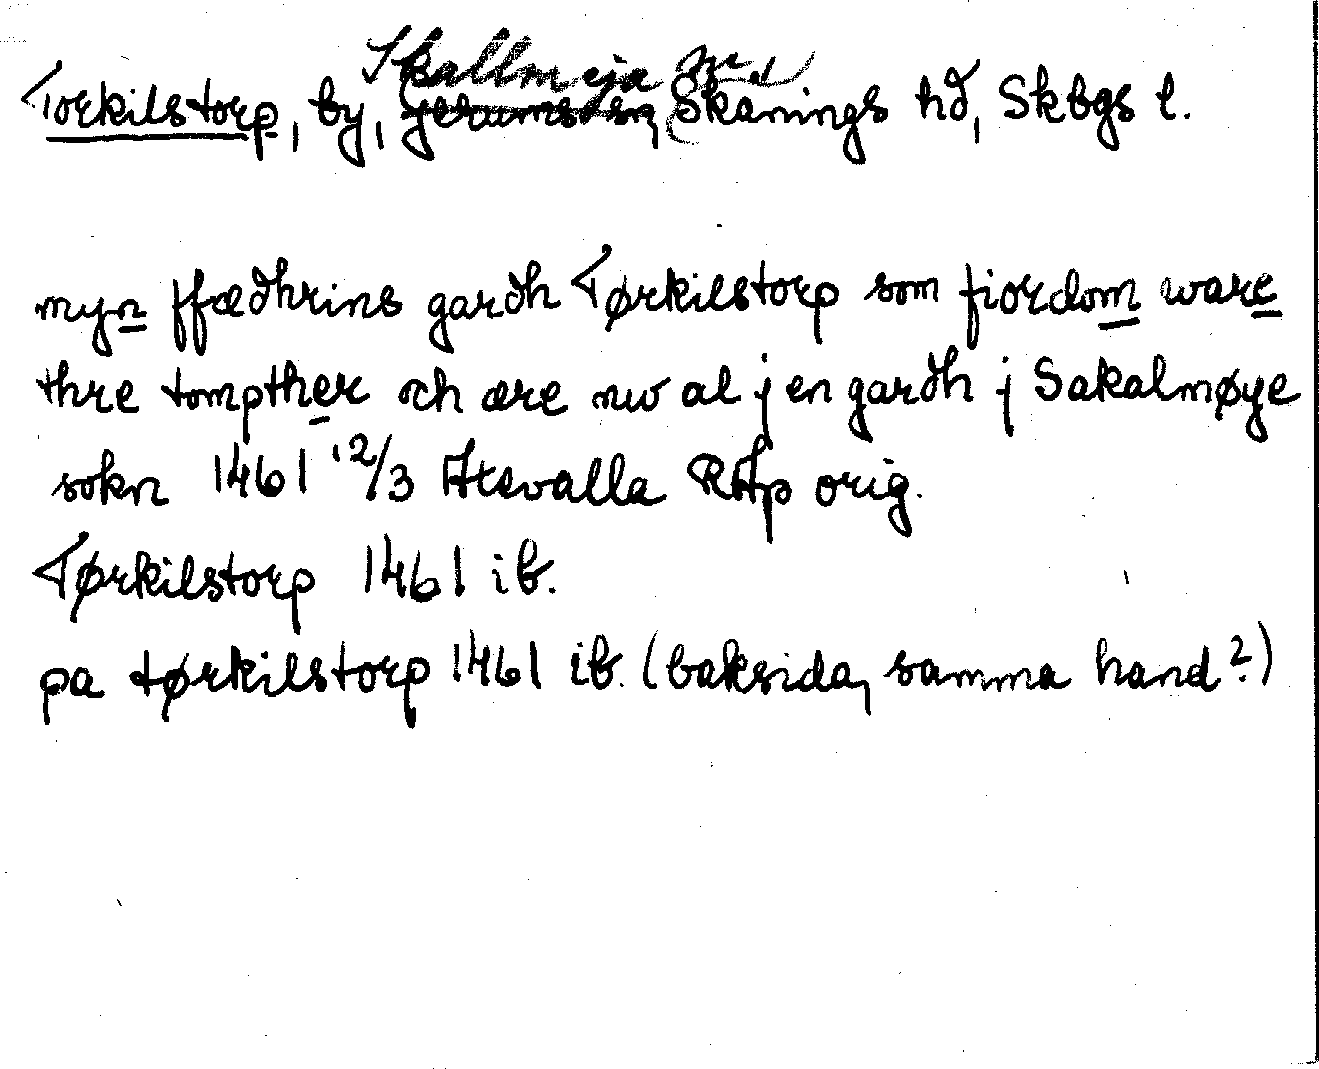 Skallmeja sn
Torkilstorp, by, Jerums sn, Skånings hd, Skbgs l.
myn ffædhrins gardh Tørkilstorp som fiordom ware
thre tompther och ære nw al j en gardh j Sakalmøye
sokn 1461 12/3 Htsvalla RAp orig.
Tørkilstorp 1461 ib.
pa tørkilstorp 1461 ib. (baksida, samma hand?)